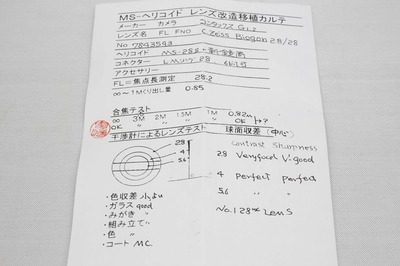 MS-ヘリコイド レンズ改造移植カルテ
メーカー カメラ コンタックス G1.2
レンズ名 FL FNO Czeiss Biogon 28/28
No 7893593
ヘリコイド MS-28S
コネクター Lマウント 28.
アクセサリー
FL=焦点長測定 28.2
∞〜1Mくり出し量 0.85
合焦テスト
∞ 3M 2M 1.5M 1M 0.82M
OK OK
干渉計によるレンズテスト 球面収差(中心)
Contrast Sharpness
2.8 Very good V.good
4 Perfect Perfect
5.6 〃 〃
2.8
4
5.6
・色収差 小
・ガラス good
・みがき 〃
・組み立て 〃
・色 〃
・コート M.C.
No.1 28 Lens